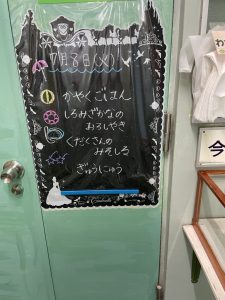 7月8日(火)
かやくごはん
しろみざかなの
おろしやき
くだくさんの
みそしる
ぎゅうにゅう
Cinderella
わ
今